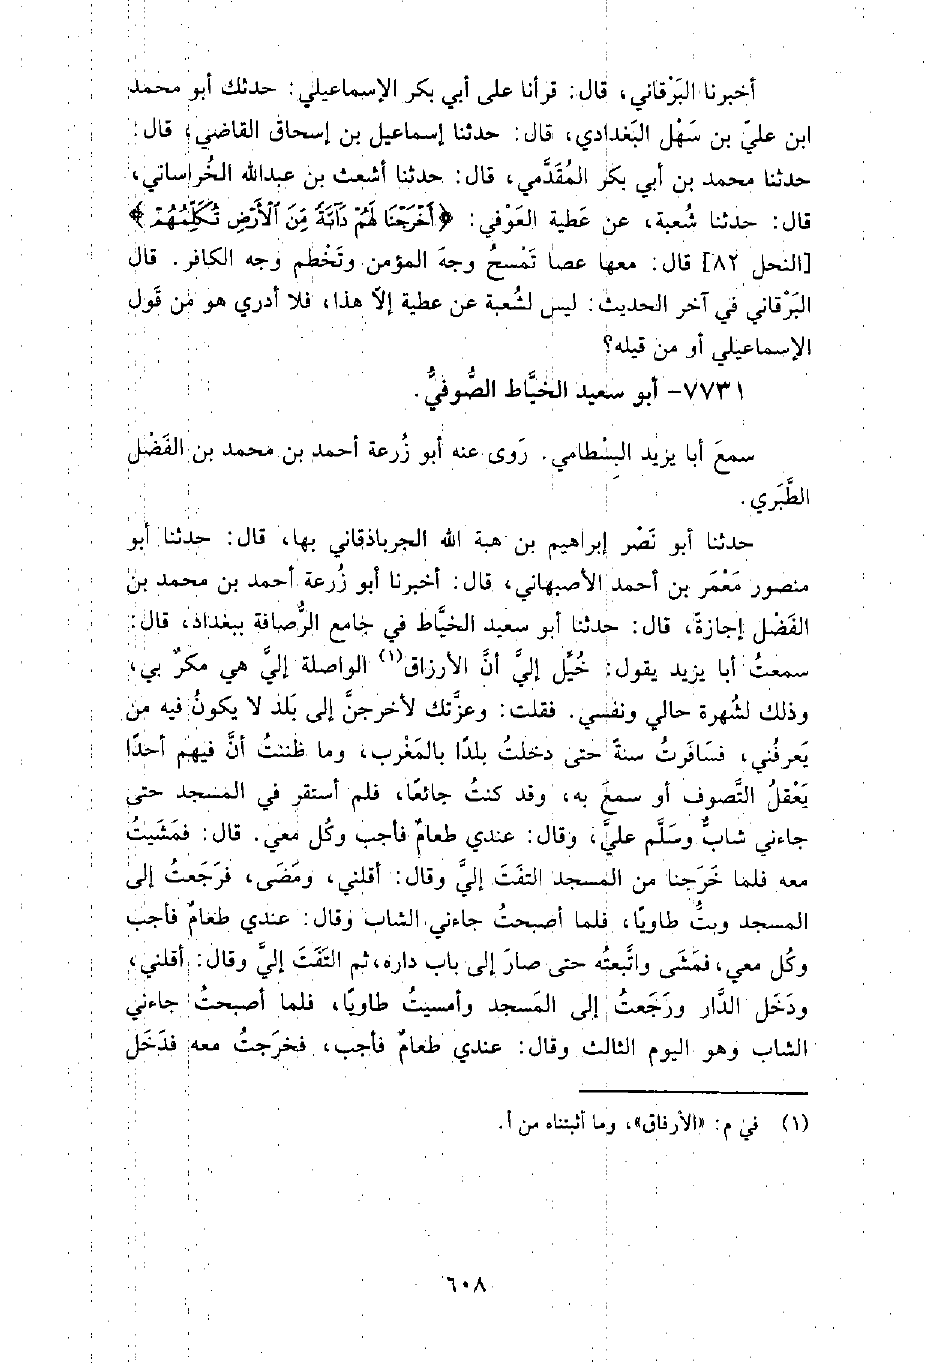 أخبرنا البَرْقاني، قال: قرأنا على أبي بكر الإسماعيلي: حدثك أبو محمد
ابن عليّ بن سَهْل البَغدادي، قال: حدثنا إسماعيل بن إسحاق القاضي، قال:
حدثنا محمد بن أبي بكر المُقَدَّمي، قال: حدثنا أشعث بن عبدالله الخُراساني،
قال: حدثنا شُعبة، عن عَطية العَوْفي: ﴿أَخْرَجْنَا لَهُمْ دَآبَّةً مِّنَ ٱلْأَرْضِ تُكَلِّمُهُمْ﴾
[النحل ٨٢] قال: معها عصا تَمْسحُ وجهَ المؤمن وتَخْطم وجه الكافر. قال
البَرْقاني في آخر الحديث: ليس لشُعبة عن عطية إلّا هذا، فلا أدري هو من قَول
الإسماعيلي أو من قيله؟
٧٧٣١- أبو سعيد الخيَّاط الصُّوفيُّ.
سمعَ أبا يزيد البِسْطامي. رَوى عنه أبو زُرعة أحمد بن محمد بن الفَضْل
الطَّبَري.
حدثنا أبو نَصْر إبراهيم بن هبة الله الجرباذقاني بها، قال: حدثنا أبو
منصور مَعْمَر بن أحمد الأصبهاني، قال: أخبرنا أبو زُرعة أحمد بن محمد بن
الفَضْل إجازةً، قال: حدثنا أبو سعيد الخيَّاط في جامع الرُّصافة ببغداذ، قال:
سمعتُ أبا يزيد يقول: خُيِّل إليَّ أنَّ الأرزاق(١) الواصلة إليَّ هي مكرٌ بي،
وذلك لشُهرة حالي ونفسي. فقلت: وعزَّتك لأخرجنَّ إلى بَلَد لا يكونُ فيه من
يَعرفُني، فسَافَرتُ سنةً حتى دخلتُ بلدًا بالمَغْرب، وما ظننتُ أنَّ فيهم أحدًا
يَعْقلُ التَّصوف أو سمعَ به، وقد كنتُ جائعًا، فلم أستقر في المسجد حتى
جاءني شابٌّ وسَلَّم عليَّ، وقال: عندي طعامٌ فأجب وكُل معي. قال: فمَشَيتُ
معه فلما خَرَجنا من المسجد التفَتَ إليَّ وقال: أقلني، ومَضَى، فرَجَعتُ إلى
المسجد وبتُّ طاويًا، فلما أصبحتُ جاءني الشاب وقال: عندي طعامٌ فأجب
وكُل معي، فمَشَى واتَّبعتُه حتى صارَ إلى باب داره، ثم التَفَتَ إليَّ وقال: أقلني،
ودَخَل الدَّار ورَجَعتُ إلى المَسجد وأمسيتُ طاويًا، فلما أصبحتُ جاءني
الشاب وهو اليوم الثالث وقال: عندي طعامٌ فأجب، فخرَجتُ معه فدَخَل
(١) في م: «الأرفاق»، وما أثبتناه من أ.
٦٠٨